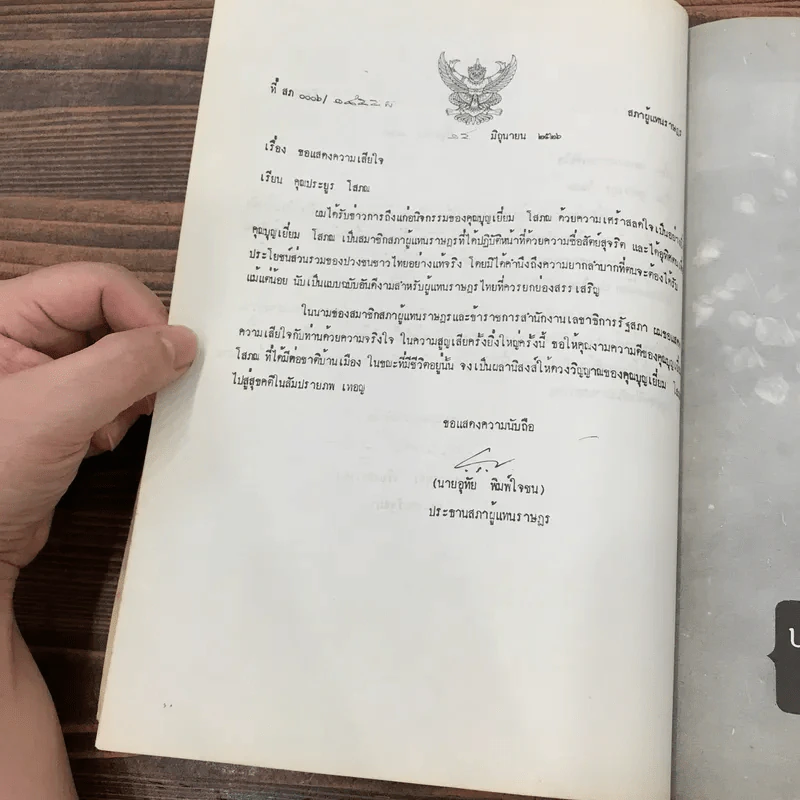 ที่ สภ ๐๐๐๖/
สภาผู้แทนราษฎร
๒๔ มิถุนายน ๒๕๒๖
เรื่อง ขอแสดงความเสียใจ
เรียน คุณประยูร โสภณ
ผมได้รับข่าวการถึงแก่อนิจกรรมของคุณบุญเยี่ยม โสภณ ด้วยความเศร้าสลดใจเป็นอย่างยิ่ง
คุณบุญเยี่ยม โสภณ เป็นสมาชิกสภาผู้แทนราษฎรที่ได้ปฏิบัติหน้าที่ด้วยความซื่อสัตย์สุจริต และได้อุทิศตนเพื่อ
ประโยชน์ส่วนรวมของปวงชนชาวไทยอย่างแท้จริง โดยมิได้คำนึงถึงความยากลำบากที่ตนจะต้องได้รับ
แม้แต่น้อย นับเป็นแบบฉบับอันดีงามสำหรับผู้แทนราษฎรไทยที่ควรยกยองสรรเสริญ
ในนามของสมาชิกสภาผู้แทนราษฎรและข้าราชการสำนักงานเลขาธิการรัฐสภา ผมขอแสดง
ความเสียใจกับท่านด้วยความจริงใจ ในความสูญเสียครั้งยิ่งใหญ่ครั้งนี้ ขอให้คุณงามความดีของคุณบุญเยี่ยม
โสภณ ที่ได้มีต่อชาติบ้านเมือง ในขณะที่มีชีวิตอยู่นั้น จงเป็นผลานิสงส์ให้ดวงวิญญาณของคุณบุญเยี่ยม
ไปสู่สุขคติในสัมปรายภพ เทอญ
ขอแสดงความนับถือ
(นายอุทัย พิมพ์ใจชน)
ประธานสภาผู้แทนราษฎร